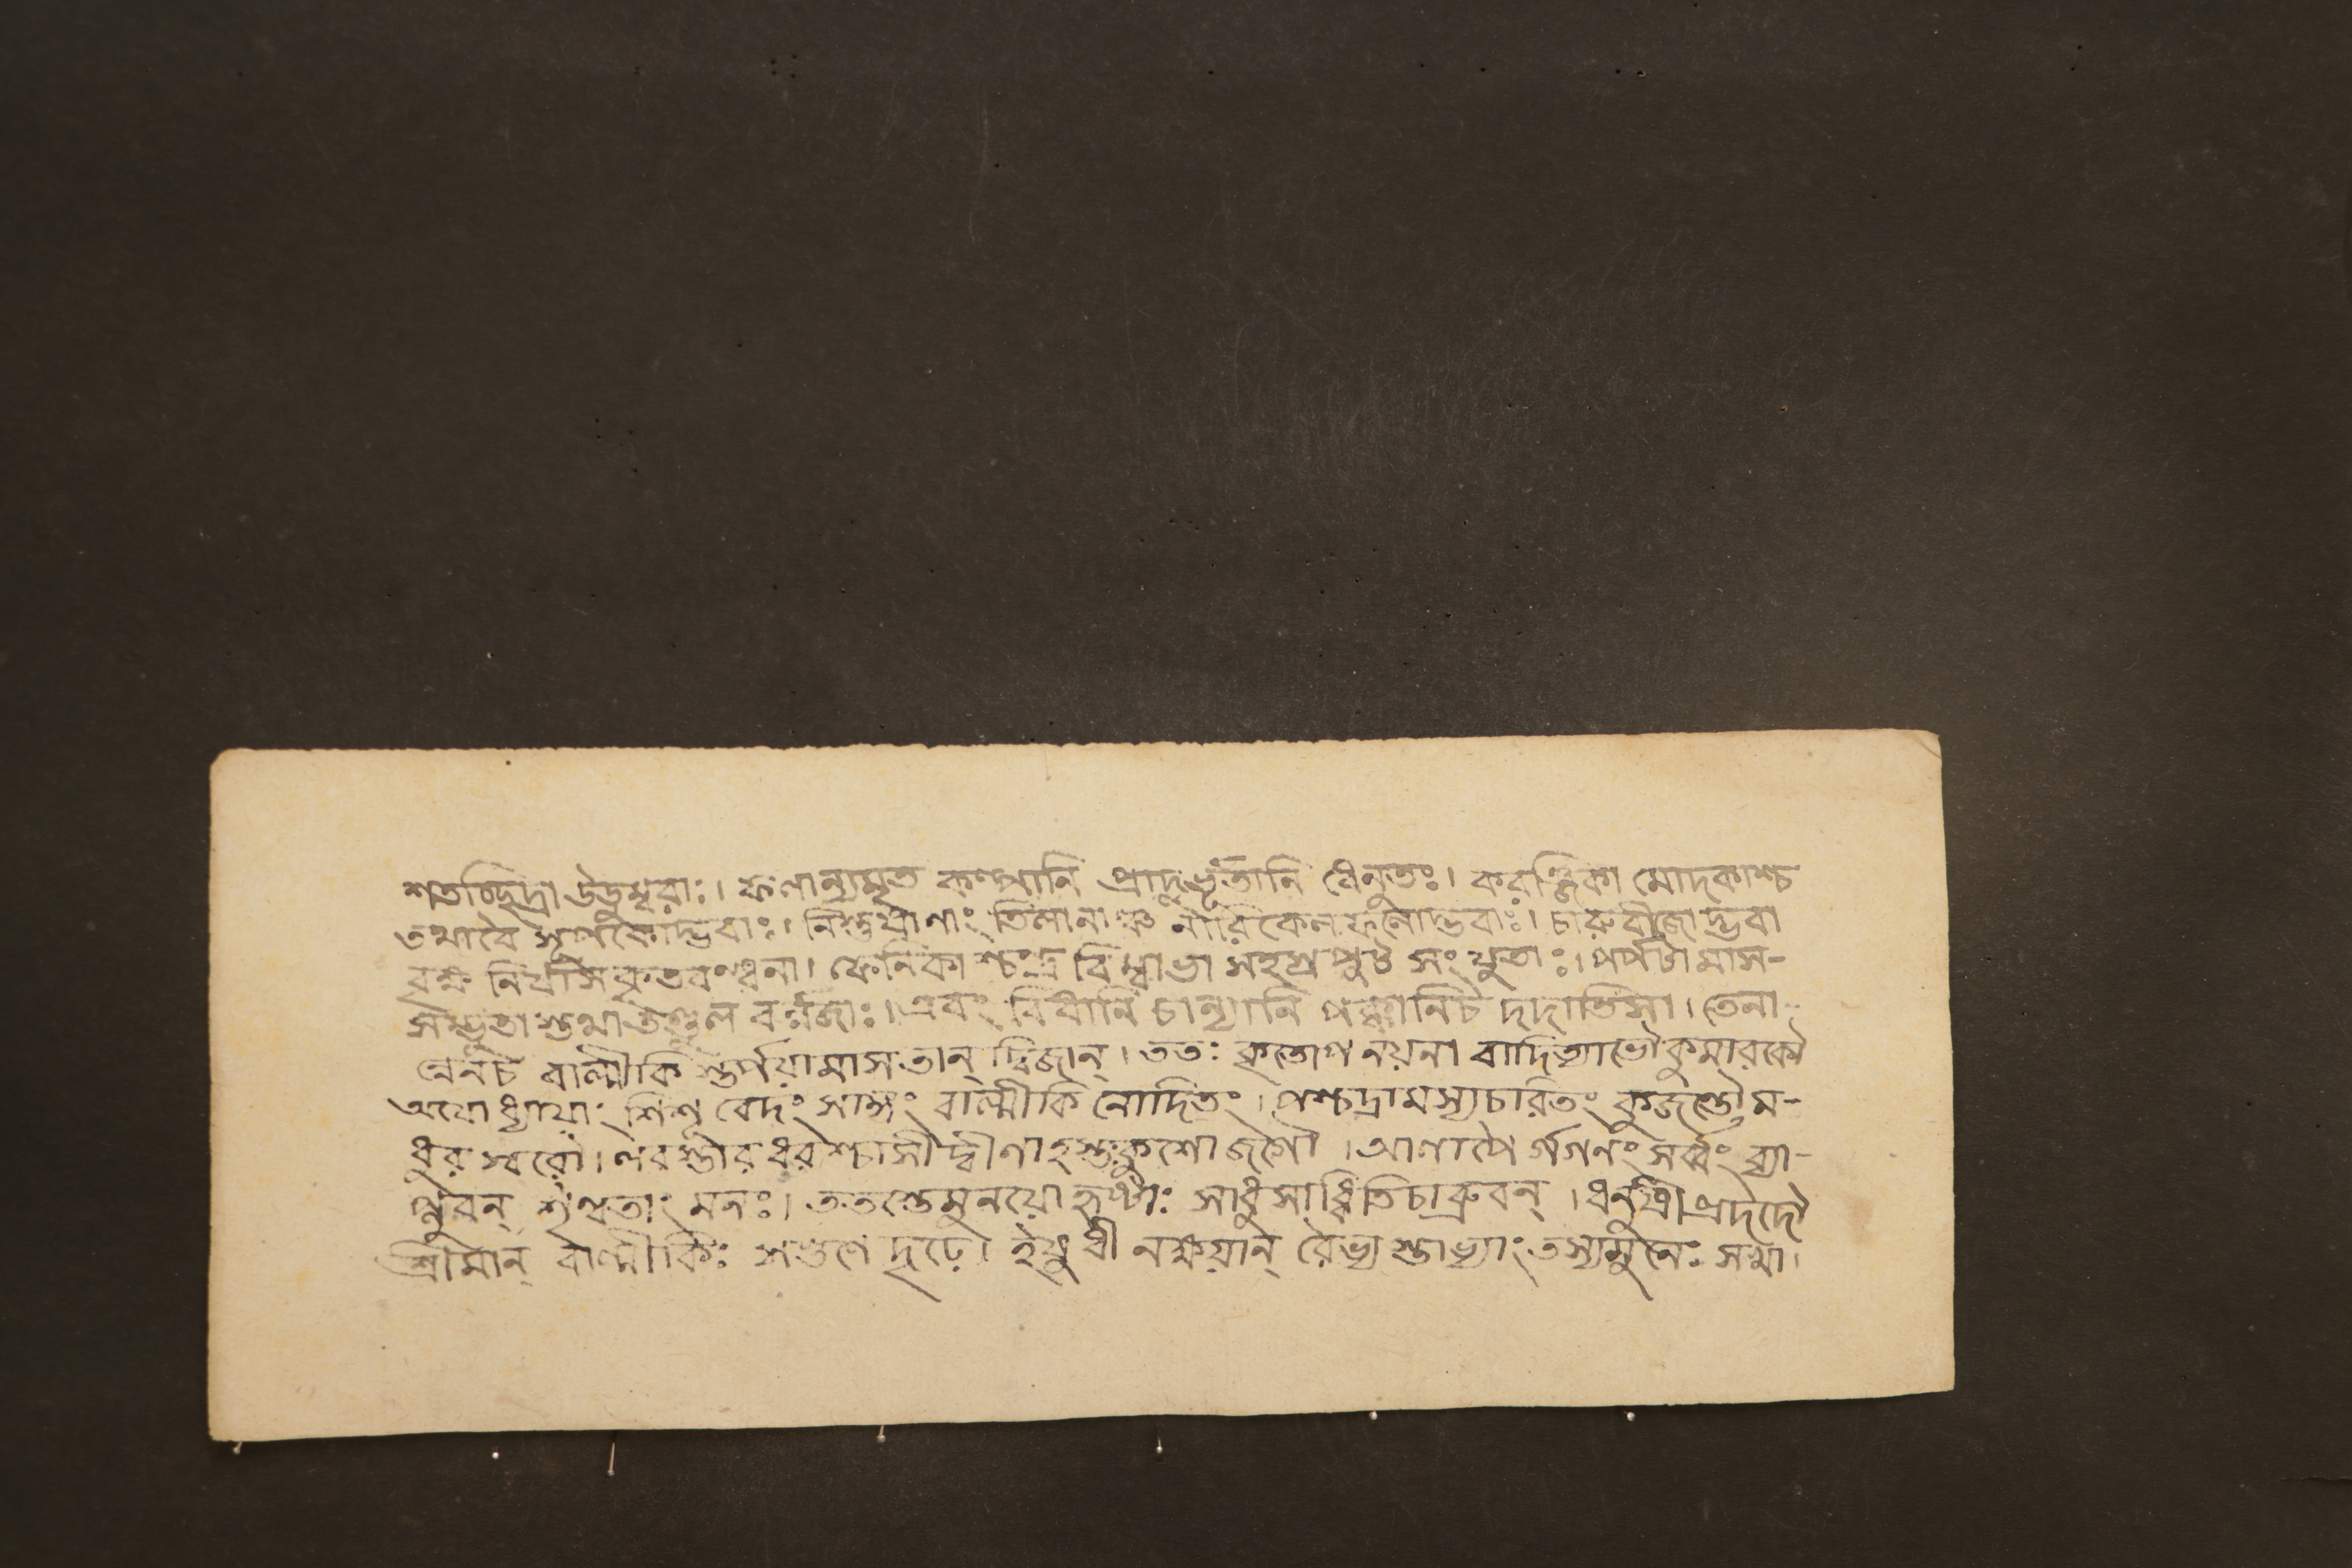 শতচ্ছিদ্রা উডুম্বরাঃ। ফলান্যমৃত কল্পানি প্রাদুর্ভূতানি ধেনুতঃ। করঞ্জিকা মোদকাশ্চ
তথাবৈ সূপকোদ্ভবাঃ। নিস্তুষাণাং তিলানাঞ্চ নারিকেল ফলোদ্ভবাঃ। চারুবীজোদ্ভবা
বহ্ম নির্য্যাসকৃতবন্ধনা। ফেনিকাশ্চন্দ্র বিম্বাভা সহস্র পুট সংযুতাঃ। পর্পটা মাস-
সম্ভূতা স্তথাতণ্ডুল বর্ণজাঃ। এবং বিধানি চান্যানি পক্বানিচ দদাতিসা। তেনা-
ন্নেনচ বাল্মীকি স্তর্পয়ামাস তান্ দ্বিজান্। ততঃ কৃতোপনয়না বাদিত্যাভৌ কুমারকৌ
অযোধ্যায়াং বেদং সাঙ্গং বাল্মীকি নোদিতং। পশ্চাদ্রামস্যচরিতং কুজন্তৌ ম-
ধুর স্বরৌ। লবস্তীরধরশ্চাসীদ্বীণাহস্তঃকুশো জগৌ। আলাপৈর্গগনং সর্ব্বং ব্যা-
প্নুবন্ শৃণ্বতাং মনঃ। ততস্তেমুনয়ো হৃষ্টাঃ সাধুসাধ্বিতিচাব্রুবন্। ধনুষী প্রদদৌ
শ্রীমান্ বাল্মীকিঃ সগুণে দৃঢ়ে। ইষুধী নক্ষয়ান্ রৈভ্য স্তাভ্যাং তস্যমুনেঃ সখা।